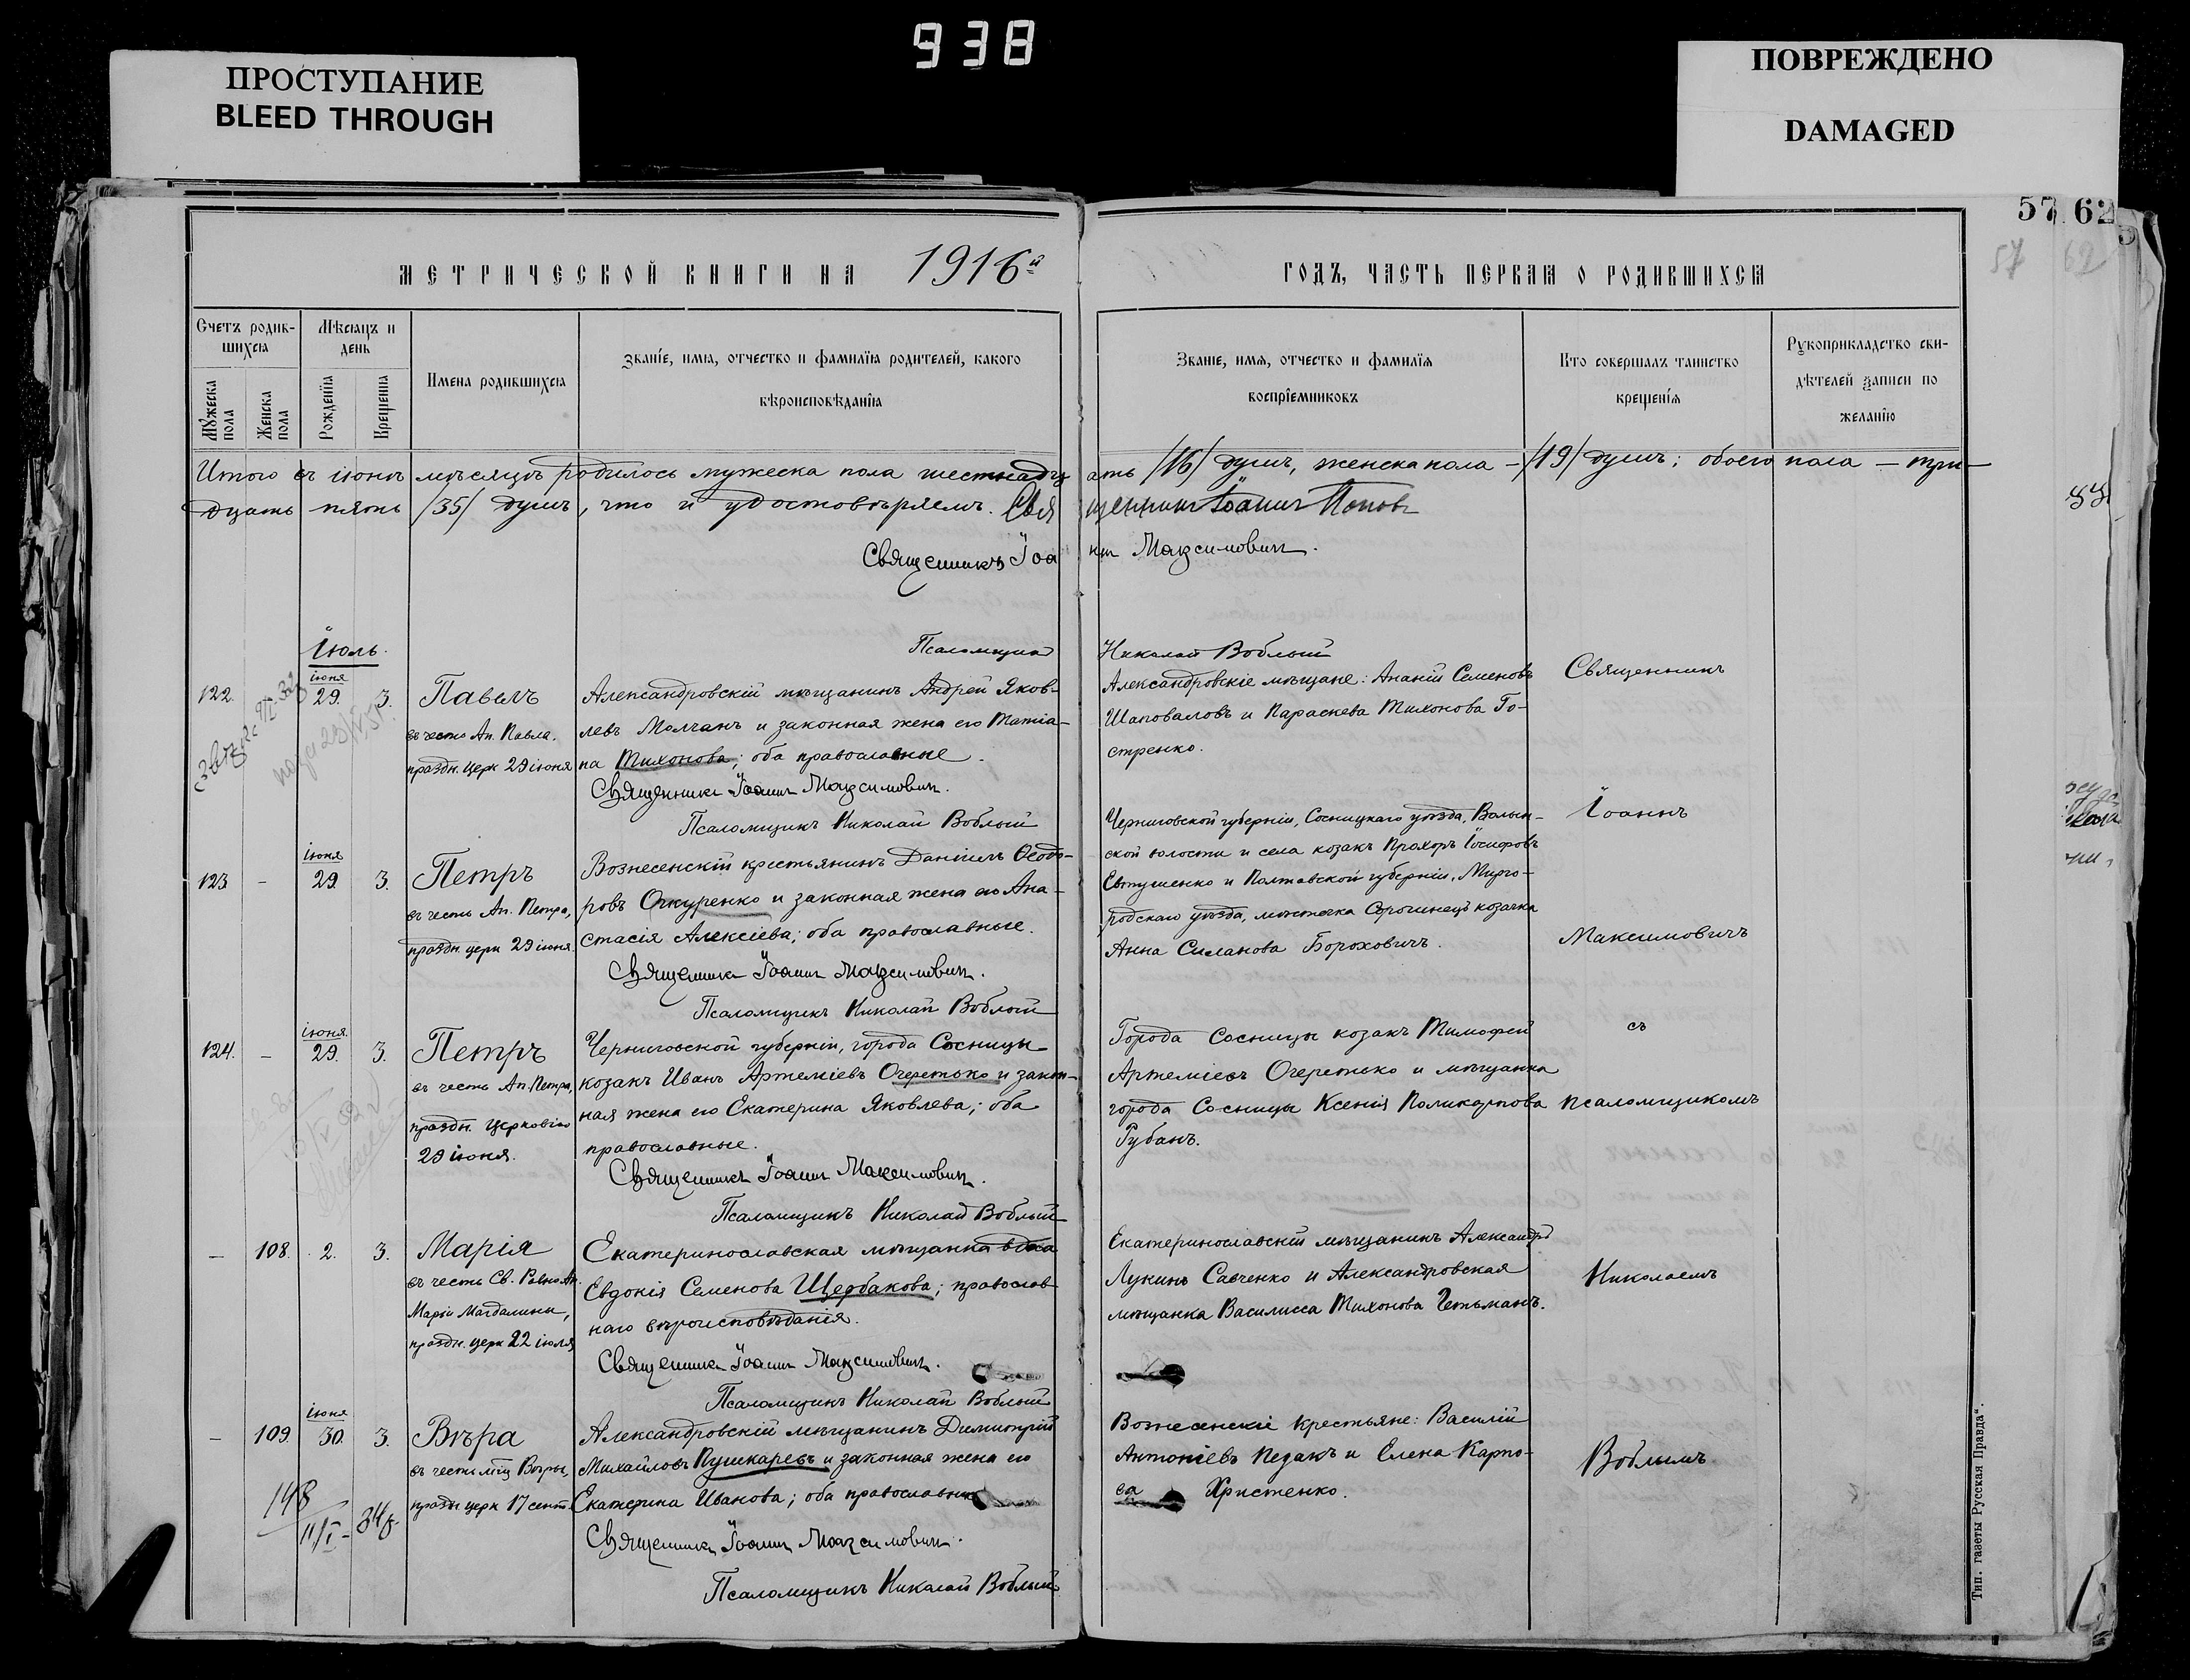 938
ПРОСТУПАНИЕ
BLEED THROUGH
ПОВРЕЖДЕНО
DAMAGED
57 62
57 62
МЕТРИЧЕСКОЙ КНИГИ НА 1916й
ГОДЪ, ЧАСТЬ ПЕРВАЯ О РОДИВШИХСЯ
Счетъ родив-
шихся
Мѣсяцъ и
день
Мужеска
пола
Женска
пола
Рожденія
Крещенія
Имена родившихся
Званіе, имя, отчество и фамилія родителей, какого
вѣроисповѣданія
Званіе, имя, отчество и фамилія
воспріемниковъ
Кто совершалъ таинство
крещенія
Рукоприкладство сви-
дѣтелей записи по
желанію
Итого въ іюнѣ мѣсяцѣ родилось мужеска пола шестнадц ать /16/ душъ, женска пола – /19/ душъ; обоего пола – три-
дцать пять /35/ душъ, что и удостовѣряемъ. Свя щенникъ Іоаннъ Поповъ
Священникъ Іоа ннъ Максимовичъ.
Псаломщикъ Николай Воблый
Іюль.
іюня
122. 29. 3. Павелъ
въ честь Ап. Павла.
праздн. церк 29 іюня
Александровскій мѣщанинъ Андрей Яков-
левъ Молчанъ и законная жена его Татіа-
на Тихонова; оба православные.
Священникъ Іоаннъ Максимовичъ.
Псаломщикъ Николай Воблый
Александровскіе мѣщане: Ананій Семеновъ
Шаповаловъ и Параскева Тихонова Го-
стренко.
Священникъ
іюня
123 - 29. 3. Петръ
въ честь Ап. Петра,
праздн. церк 29 іюня
Вознесенскій крестьянинъ Даніилъ Ѳеодо-
ровъ Очкуренко и законная жена его Ана-
стасія Алексіева; оба православные.
Священникъ Іоаннъ Максимовичъ.
Псаломщикъ Николай Воблый
Черниговской губерніи, Сосницкаго уѣзда, Волын-
ской волости и села козакъ Прохоръ Іосифовъ
Евтушенко и Полтавской губерніи, Мирго-
родскаго уѣзда, мѣстечка Сорочинецъ козачка
Анна Силанова Борохович.
Іоаннъ
Максимовичъ
іюня.
124. - 29. 3. Петръ
въ честь Ап. Петра,
праздн. церковію
29 іюня.
Черниговской губерніи, города Сосницы
козакъ Иванъ Артеміевъ Очеретько и закон-
ная жена его Екатерина Яковлева; оба
православные.
Священникъ Іоаннъ Максимовичъ.
Псаломщикъ Николай Воблый
Города Сосницы козакъ Тимофей
Артеміевъ Очеретько и мѣщанка
города Сосницы Ксенія Поликарпова
Рубанъ.
съ
псаломщикомъ
- 108. 2. 3. Марія
въ честь Св. РавноАп.
Маріи Магдалины,
праздн. церк 22 іюля
Екатеринославская мѣщанка вдова
Евдокія Семенова Щербакова; православ
наго вѣроисповѣданія.
Священникъ Іоаннъ Максимовичъ.
Псаломщикъ Николай Воблый
Екатеринославскій мѣщанинъ Александръ
Лукинъ Савченко и Александровская
мѣщанка Василисса Тихонова Гетьманъ.
Николаемъ
іюня
- 109. 30. 3. Вѣра
въ честь мц Вѣры,
праздн церк 17 сент.
148
11/I – 348.
Александровскій мѣщанинъ Димитрій
Михайловъ Пушкаревъ и законная жена его
Екатерина Иванова; оба православные
Священникъ Іоаннъ Максимовичъ.
Псаломщикъ Николай Воблый
Вознесенскіе крестьяне: Василій
Антоніевъ Педакъ и Елена Карпо-
ва Христенко.
Воблымъ.
Тип. газеты Русская Правда".